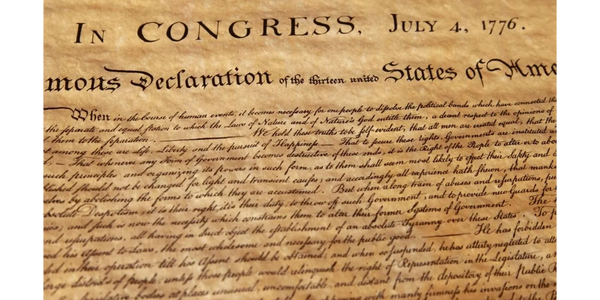 In CONGRESS, July 4, 1776.
mous Declaration of the thirteen united States of Ame
When in the Course of human events, it becomes necessary for one people to dissolve the political bands which have connected
the separate and equal station to which the Laws of Nature and of Nature's God entitle them, a decent respect to the opinions of
them to the separation. We hold these truths to be self-evident, that all men are created equal, that
among these are Life, Liberty and the pursuit of Happiness.— That to secure these rights, Governments are instituted
— That whenever any Form of Government becomes destructive of these ends, it is the Right of the People to alter or
such principles and organizing its powers in such form, as to them shall seem most likely to effect their Safety and
should not be changed for light and transient causes; and accordingly all experience hath shewn, that
by abolishing the forms to which they are accustomed. But when a long train of abuses and usurpations,
Despotism, it is their right, it is their duty, to throw off such Government, and to provide new Guards for
and such is now the necessity which constrains them to alter their former Systems of Government. The
and usurpations, all having in direct object the establishment of an absolute Tyranny over these States. To
his Assent to Laws, the most wholesome and necessary for the public good. He has forbidden
in their operation till his Assent should be obtained; and when so suspended, he has utterly neglected to
districts of people, unless those people would relinquish the right of Representation in the Legislature, a
bodies at places unusual, uncomfortable, and distant from the depository of their Public
with manly firmness his invasions on the